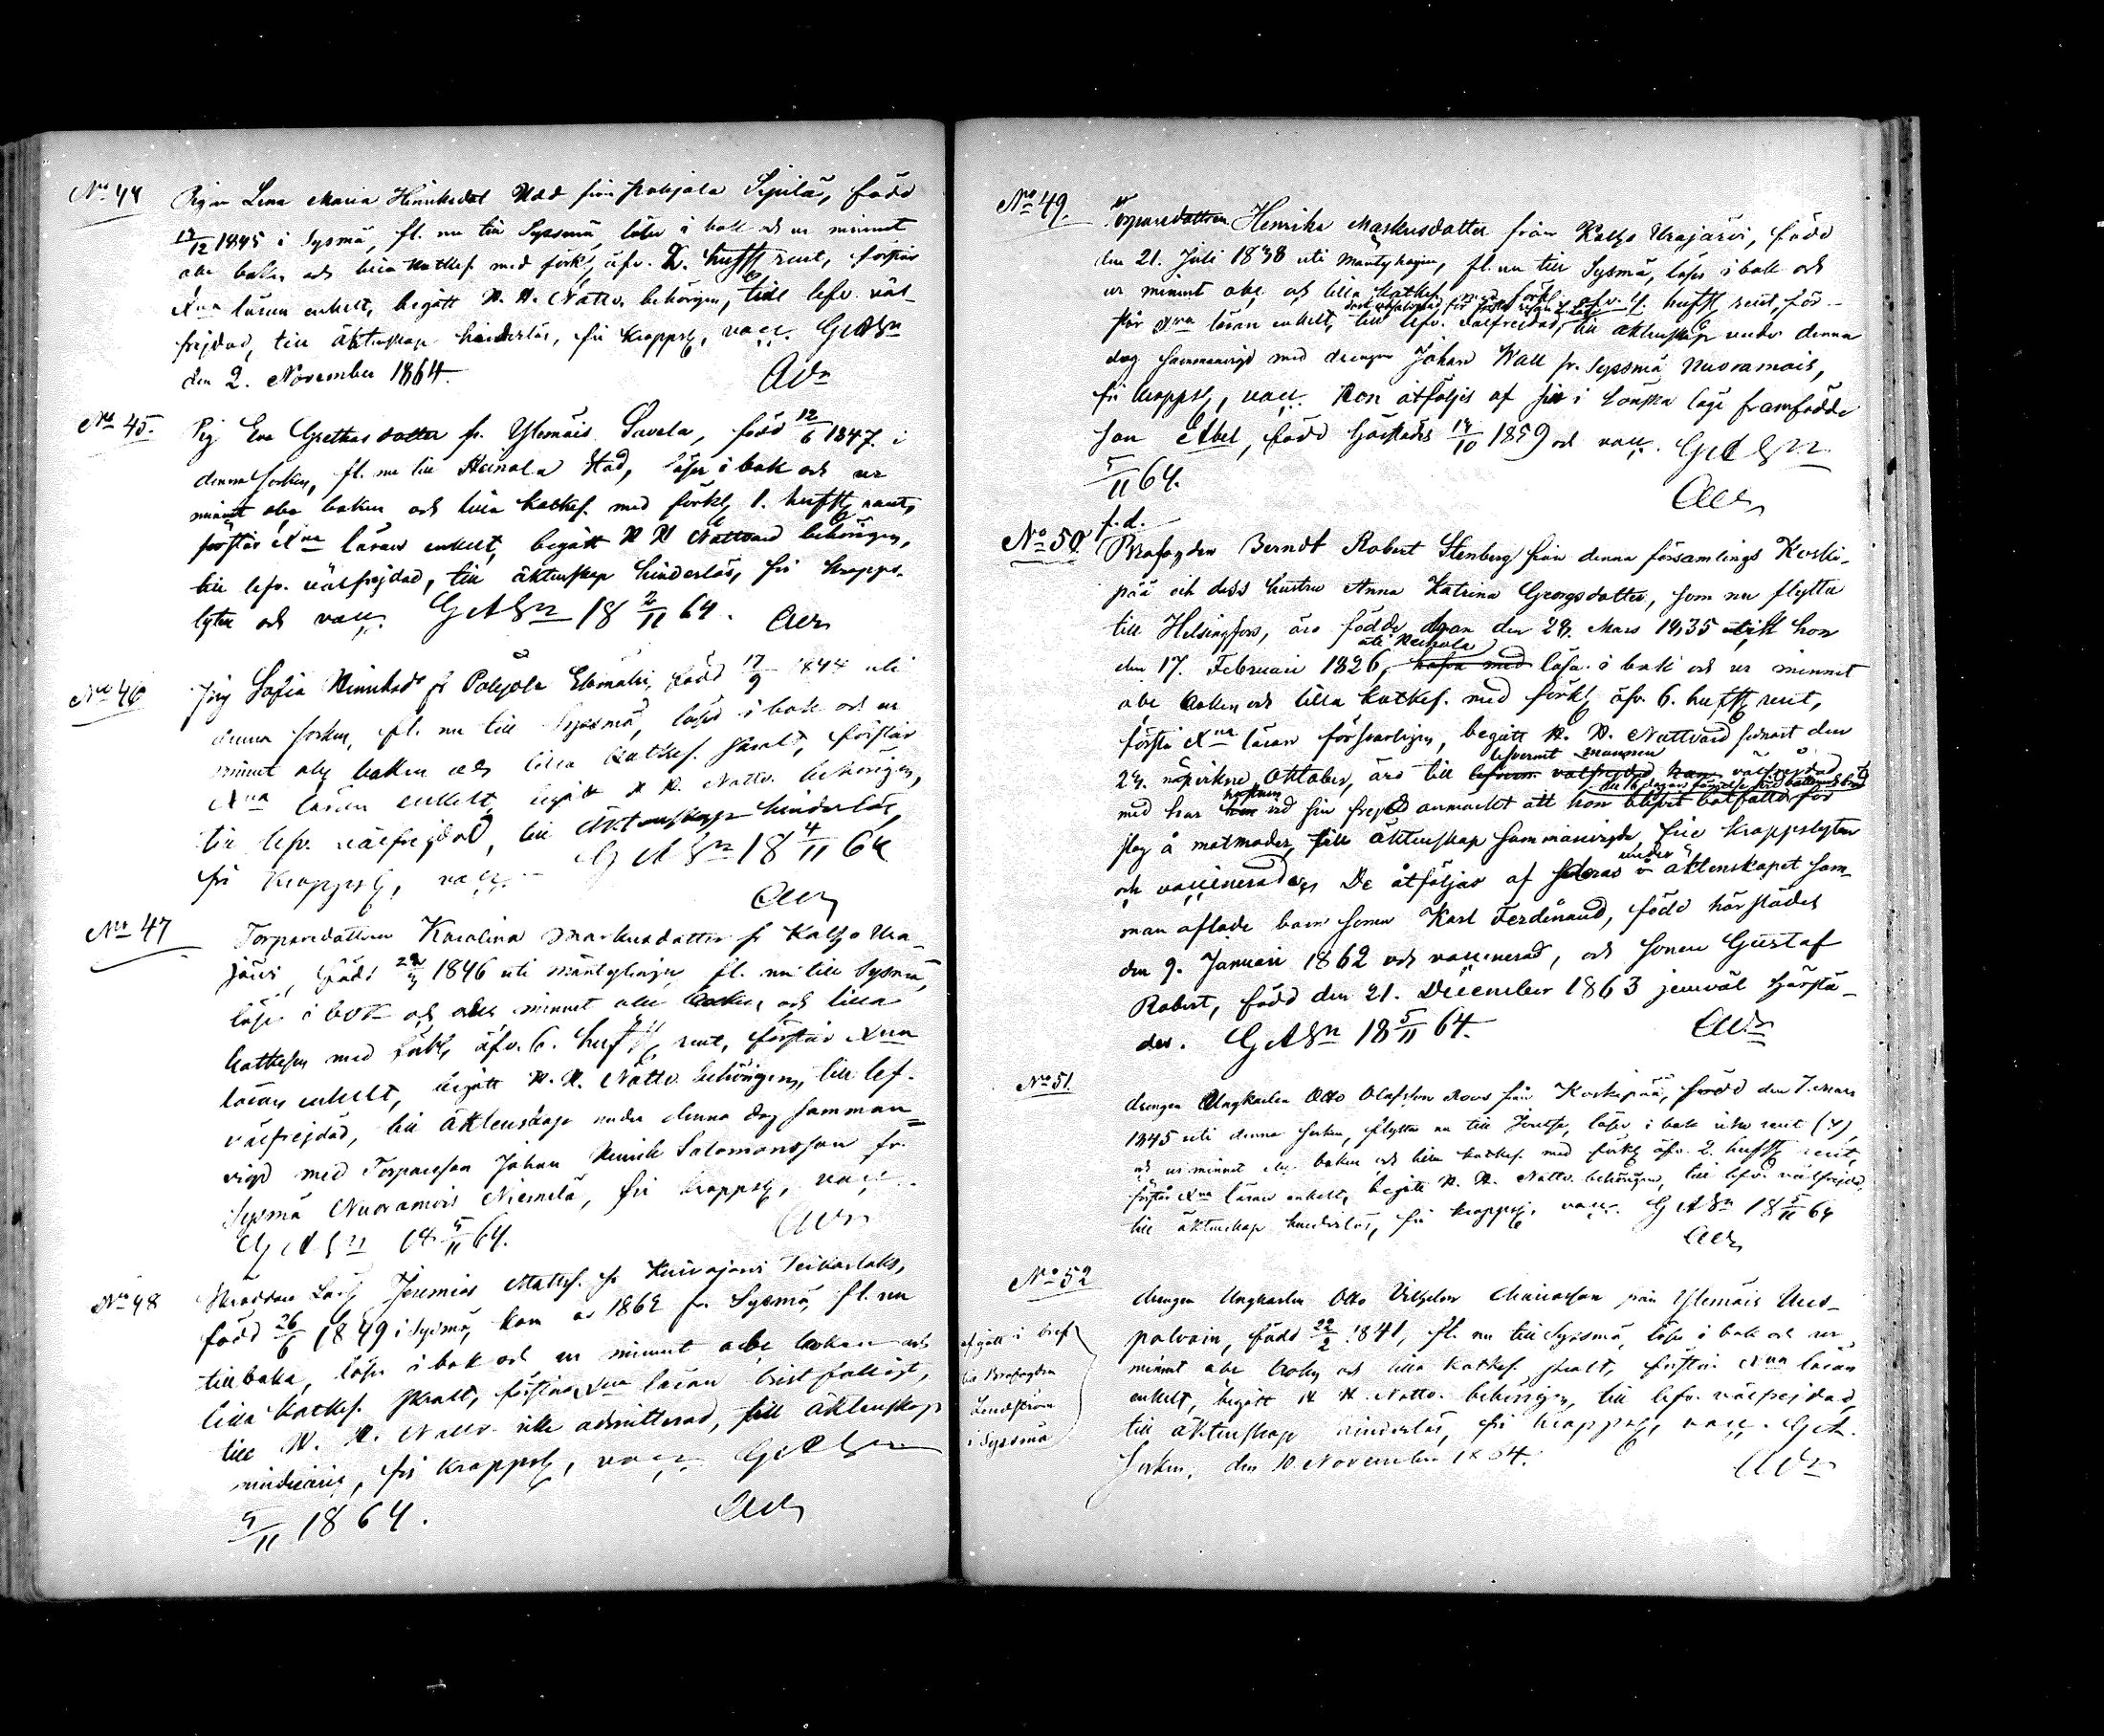 No 44 Pigan Lena Maria Henriksdot från Pohjola Sipilä, född
12/12 1845 i Sysmä, fl. nu till Sysmä läser i bok och ur minnet
abc boken och lilla Katkes. med förkl. äfv. 2. hufst rent, förstår
Xna läran enkelt, begått H. H. Nattv. behörigen, till lefv. väl-
frejdad, till äktenskap hinderlös, fri kroppsl, vacc.
den 2. November 1864.
No 45. Pig Eva Grethas dotter fr. Ylemäis Savela, född 12/6 1847 i
denna socken, fl. nu till Heinola Stad, läser i bok och ur
minnet abc boken och lilla katkes. med förkl 1. hufst rent,
förstår Xna läran enkelt, begått H H Nattvard behörigen,
till lefv. välfrejdad, till äktenskap hinderlös, fri kropps-
lyten och vacc. 18 2/11 64.
No 46 Pig Sofia Henriksd fr Pohjola, född 17/9 1844 uti
denna socken, fl. nu till Sysmä, läser i bok och ur
minnet abc boken och lilla Katkes. förstår
Xna läran enkelt, begått H H. Nattv. behörigen,
till lefv. välfrejdad, till äktenskap hinderlös,
fri kroppsl, vacc. 18 4/11 64
No 47 Torparedottren Karolina Markusdotter fr Kalho Ura-
järvi, född 1846 uti Mäntyharju, fl. nu till Sysmä,
läser i bok och minnet abc boken och lilla
katkesen med förkl. äfv. 6. hufst rent, förstår Xna
läran enkelt, begått H. H. Nattv. behörigen, till lef.
välfrejdad, till äktenskap under denna dag samman-
vigd med Torpareson Johan Henrik Salomonsson fr.
Sysmä Nuoramois Niemelä, fri kroppsl, vacc.
18 5/11 64.
No 48 Jeremias Mattss. fr
född 26/6 1849 i Sysmä, kom 1862 fr Sysmä, fl. nu
tillbaka, läser i bok och ur minnet abc boken och
lilla katkes. förstår Xna läran bristfälligt,
till H. H. Nattv. icke admitterad, till äktenskap
minderårig, fri kroppsl, vacc.
5/11 1864.
No 49. Torparedottren Henrika Markusdotter från Kalho Urajärvi, född
den 21. Juli 1838 uti Mäntyharju, fl. nu till Sysmä, läser i bok och
ur minnet abc och lilla katkes. med förkl. äfv. hufst rent, för-
står Xna läran enkelt, till lefv. välfrejdad, till äktenskap under denna
dag sammanvigd med drengen Johan Wall fr. Sysmä Nuoramois,
fri kroppsl, vacc. Hon åtföljes af sin i lönska läge framfödde
son Abel, född härstädes 14/10 1859 och vacc.
5/11 64.
f.d.
No 50 Brofogden Berndt Robert Stenberg från denna församlings Koski-
pää och dess hustru Anna Katrina Georgsdotter, som nu flytta
till Helsingfors, äro födde den 28. Mars 1835 och hon
uti Heinola
den 17. Februari 1826, läsa i bok och ur minnet
abc boken och lilla katkes. med förkl äfv. 6. hufst rent,
förstå Xna läran försvarligen, begått H. H. Nattvard senast den
lefvernet mannen
Oktober, äro till välfrejdad
med har hustrun vid sin frejd anmärkt att hon blifvit bötfälld för
slag å matmoder, till äktenskap sammanvigde, frie kroppslyten
under
och vaccinerade, De åtföljas af äktenskapet sam-
man aflade barn sonen Karl Ferdinand, född härstädes
den 9. Januari 1862 och vaccinerad, och sonen Gustaf
Robert, född den 21. December 1863 jemväl härstä-
des. 18 5/11 64.
No 51. drengen Ungkarlen Otto Olofsson från Koskipää, född den 7. Mars
1845 uti denna socken, flyttar nu till Joutsa, läser i bok icke rent (4),
och ur minnet abc boken och lilla katkes. med förkl äfv. 2. hufst rent,
förstår Xna läran enkelt, begått H. H. Nattv. behörigen, till lefv. välfrejdad,
till äktenskap hinderlös, fri kroppsl, vacc. 18 5/11 64
No 52 drengen Ungkarlen Otto Vilhelm från Ylemäis
född 22/2 1841, fl. nu till Sysmä, läser i bok och ur
minnet abc boken och lilla katkes. förstår Xna läran
enkelt, begått H H. Nattv. behörigen, till lefv. välfrejdad,
till äktenskap hinderlös, fri kroppsl, vacc.
Socken, den 10. November 1864.
afgått i bref
till Brofogden
Lindström
i Sysmä